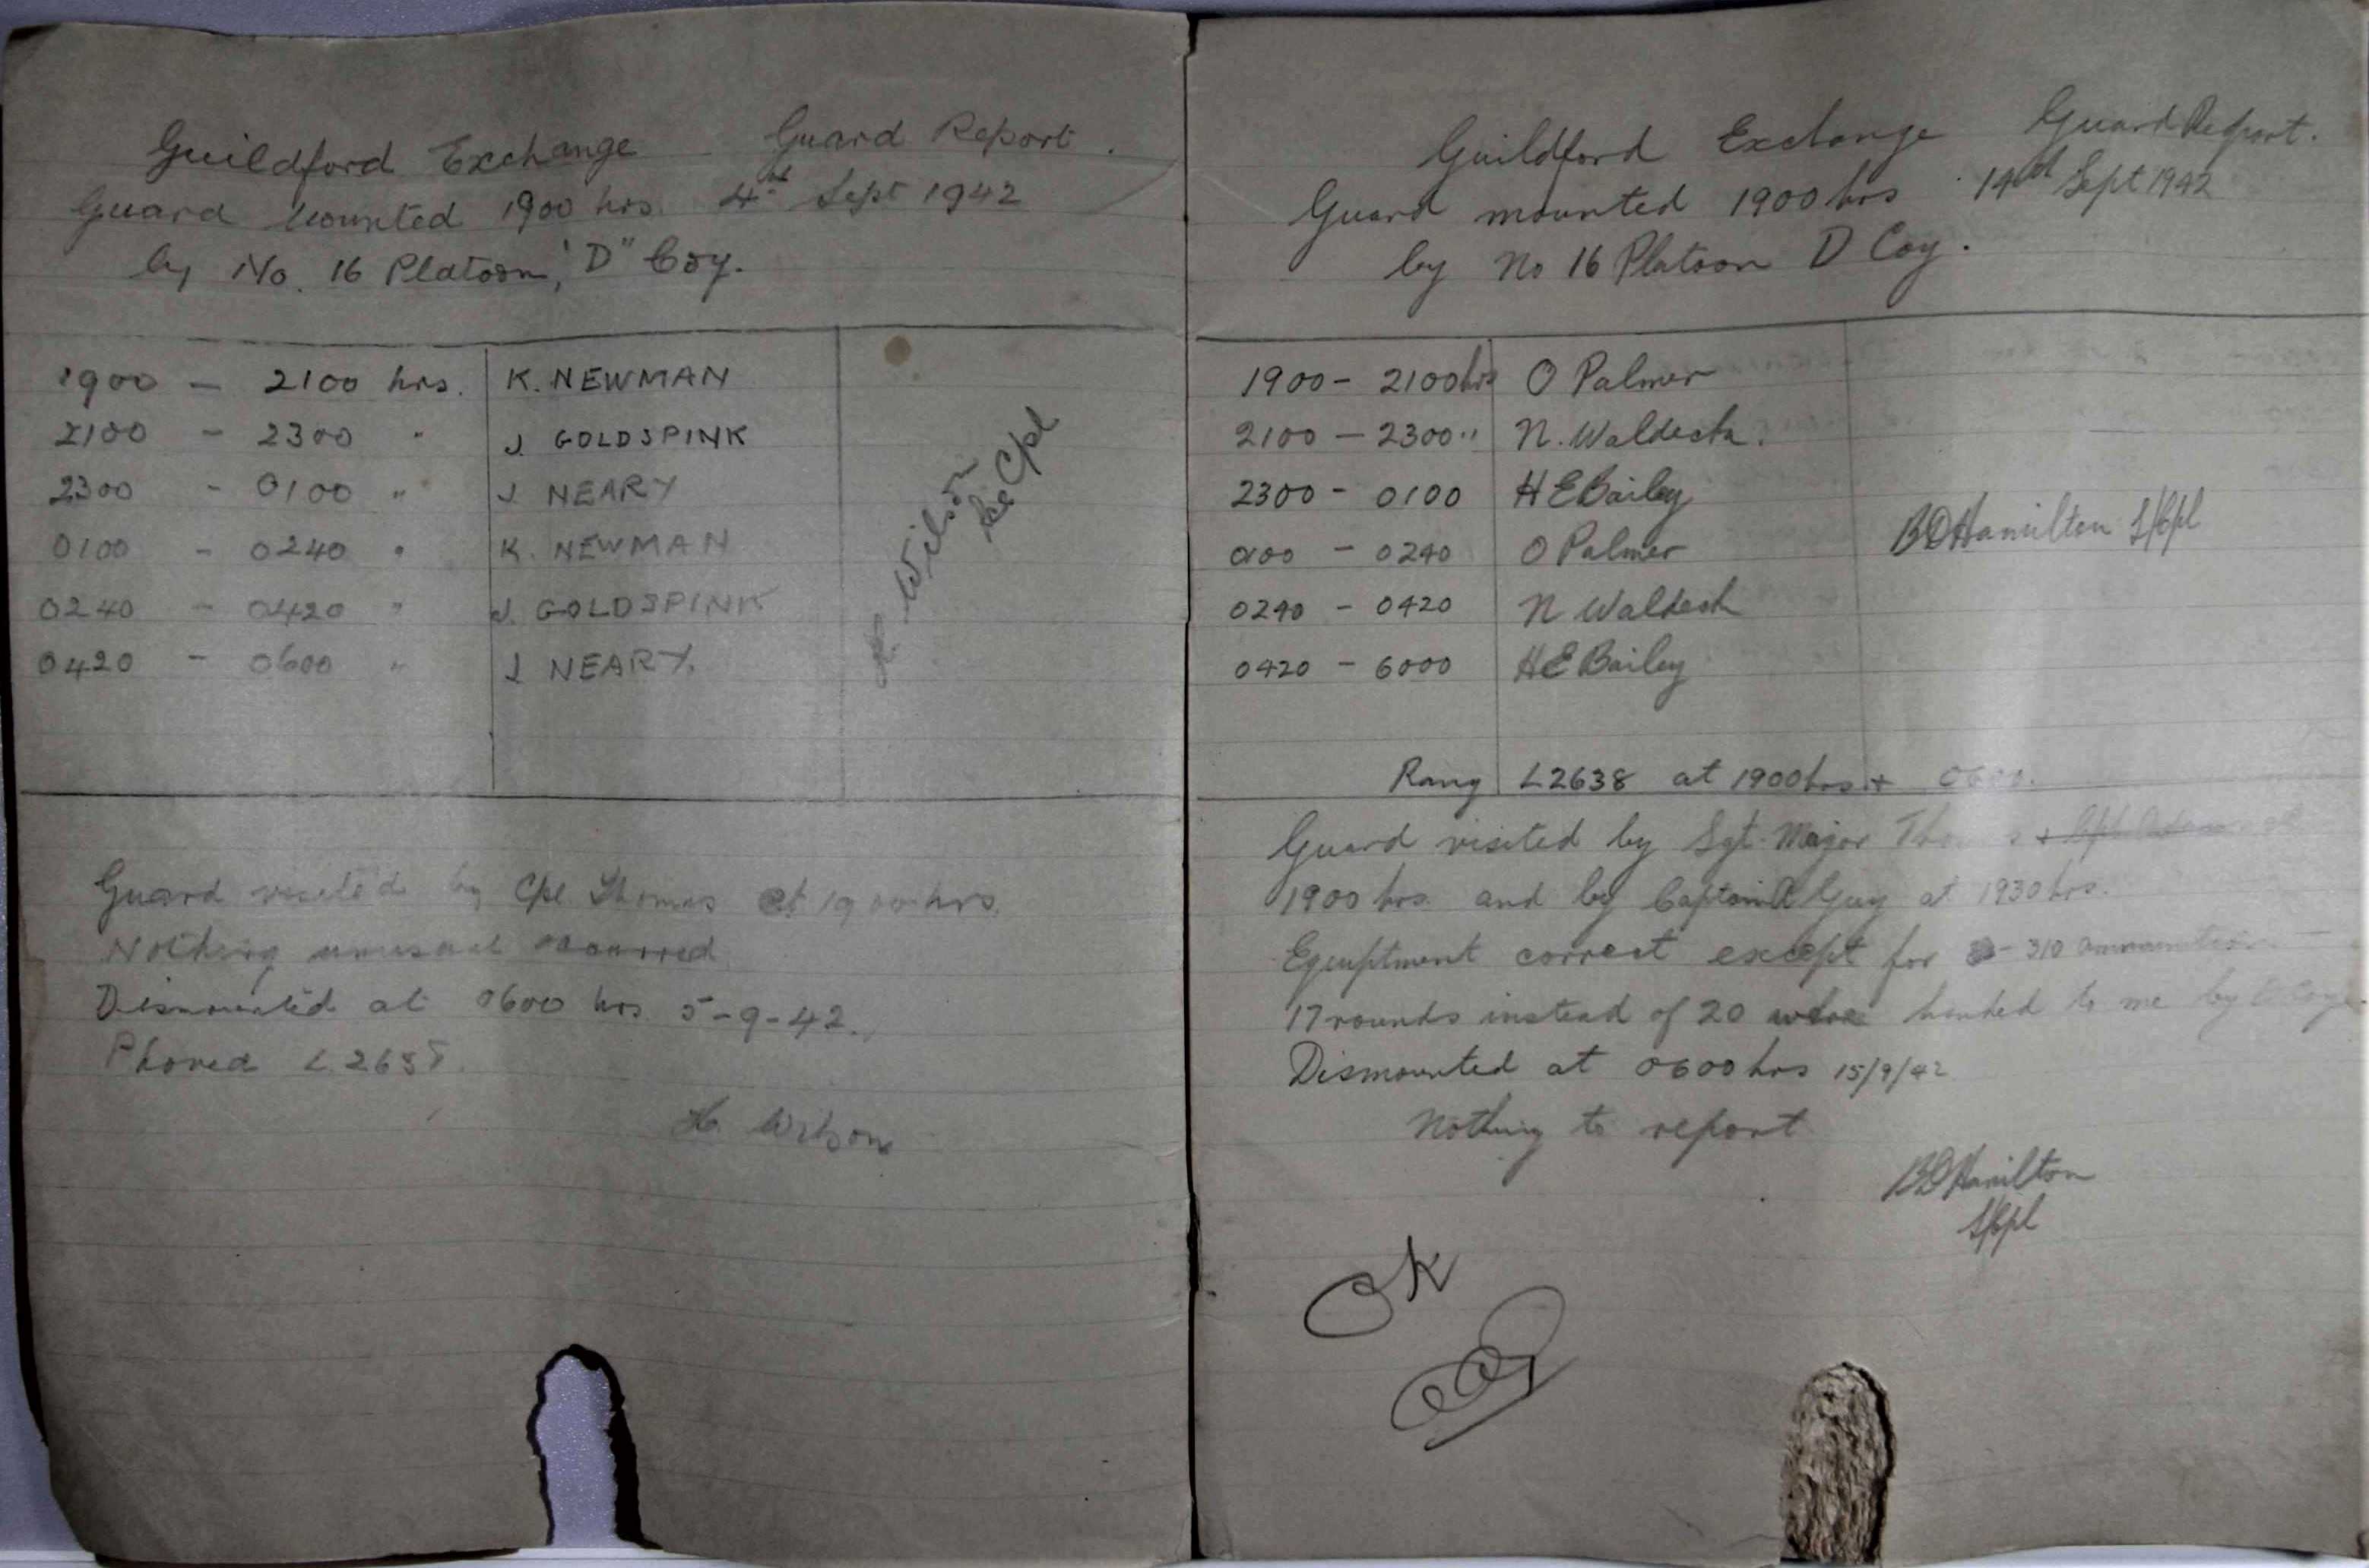 Guildford Exchange Guard Report.
Guard Mounted 1900 hrs. 4th Sept 1942
by No. 16 Platoon, "D" Coy.
1900 - 2100 hrs. K. NEWMAN
2100 - 2300 " J. GOLDSPINK
2300 - 0100 " J NEARY
0100 - 0240 " K. NEWMAN
0240 - 0420 " J. GOLDSPINK
0420 - 0600 " J NEARY.
Wilson
Cpl
Guard visited by Cpl Thomas at 1900 hrs.
Nothing unusual occurred
Dismounted at 0600 hrs 5-9-42.
Phoned L2638.
H. Wilson
Guildford Exchange Guard Report.
Guard mounted 1900 hrs 14th Sept 1942
by No 16 Platoon D Coy.
1900 - 2100 hrs O Palmer
2100 - 2300 " N. Waldeck.
2300 - 0100 H E Bailey
0100 - 0240 O Palmer
0240 - 0420 N Waldeck
0420 - 6000 H E Bailey
B D Hamilton L/Cpl
Rang L2638 at 1900 hrs + 0600.
Guard visited by Sgt. Major
1900 hrs. and by Captain Guy at 1930 hrs.
Equiptment correct except for 310 ammunition
17 rounds instead of 20 were handed to me by Coy.
Dismounted at 0600 hrs 15/9/42
Nothing to report
B D Hamilton
L/Cpl
OK